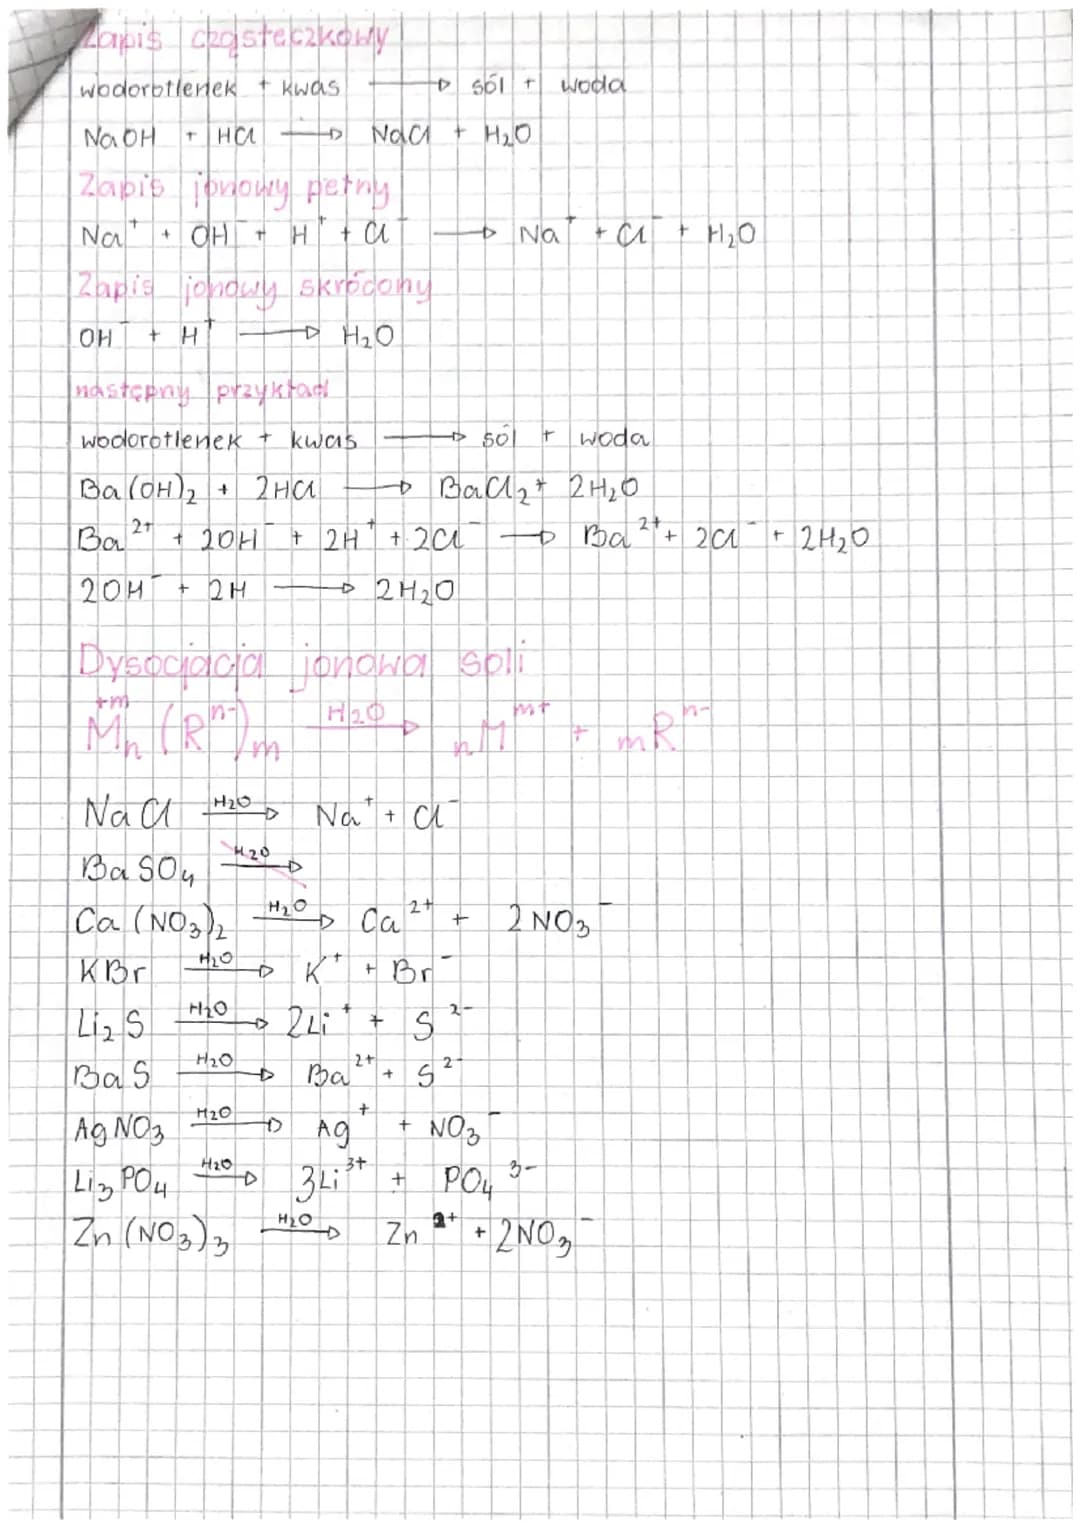 Zapis cząsteczkowy
wodorotlenek + kwas → sól + woda
NaOH + HCl → NaCl + H₂O
Zapis jonowy pełny
Na⁺ + OH⁻ + H⁺ + Cl⁻ → Na⁺ + Cl⁻ + H₂O
Zapis jonowy skrócony
OH⁻ + H⁺ → H₂O
następny przykład
wodorotlenek + kwas → sól + woda
Ba(OH)₂ + 2HCl → BaCl₂ + 2H₂O
Ba²⁺ + 2OH⁻ + 2H⁺ + 2Cl⁻ → Ba²⁺ + 2Cl⁻ + 2H₂O
2OH⁻ + 2H → 2H₂O
Dysocjacja jonowa soli
Mₙ⁺ᵐ(Rⁿ⁻)ₘ —H₂O→ nMᵐ⁺ + mRⁿ⁻
NaCl —H₂O→ Na⁺ + Cl⁻
BaSO₄ —H₂O→
Ca(NO₃)₂ —H₂O→ Ca²⁺ + 2NO₃⁻
KBr —H₂O→ K⁺ + Br⁻
Li₂S —H₂O→ 2Li⁺ + S²⁻
BaS —H₂O→ Ba²⁺ + S²⁻
AgNO₃ —H₂O→ Ag⁺ + NO₃⁻
Li₃PO₄ —H₂O→ 3Li³⁺ + PO₄³⁻
Zn(NO₃)₃ —H₂O→ Zn²⁺ + 2NO₃⁻